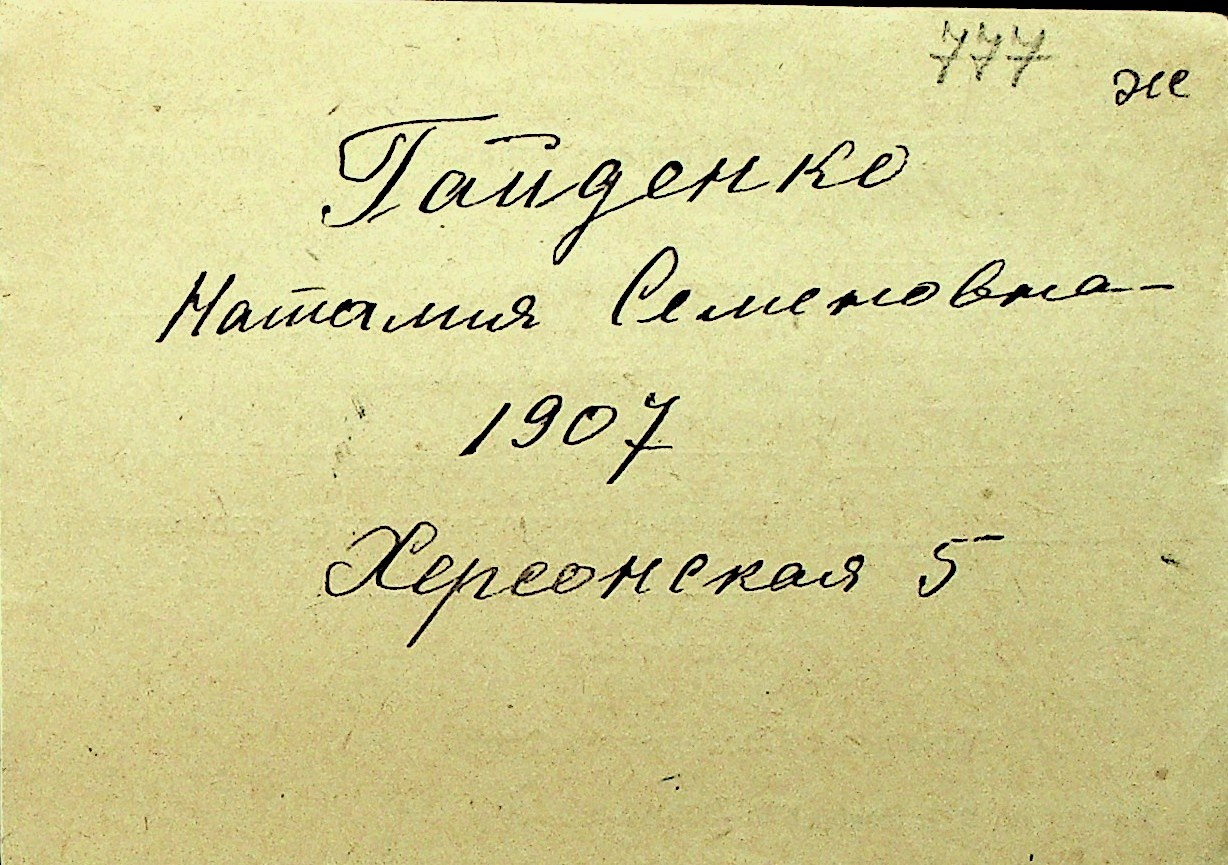 777 ж
Гайденко
Наталия Семеновна
1907
Херсонская 5